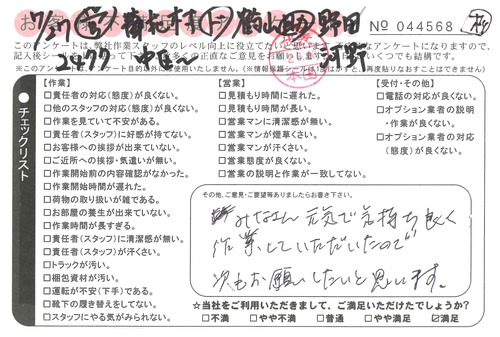 No 044568
このアンケートは、弊社作業スタッフのレベル向上に役立てたい
なアンケートになりますので、
記入後シー
正直なご意見をお願いします
いくつでも結構です。
チェックリスト
【作業】
□責任者の対応(態度)が良くない。
□他のスタッフの対応(態度)が良くない。
□作業を見ていて不安がある。
□責任者(スタッフ)に好感が持てない。
□お客様への挨拶が出来ていない。
□ご近所への挨拶・気遣いが無い。
□作業開始前の内容確認がなかった。
□作業開始時間が遅れた。
□荷物の取り扱いが雑である。
□お部屋の養生が出来ていない。
□作業時間が長すぎる。
□責任者(スタッフ)に清潔感が無い。
□責任者(スタッフ)が汗くさい。
□トラックが汚い。
□梱包資材が汚い。
□運転が不安(下手)である。
□靴下の履き替えをしてない。
□スタッフにやる気がみられない。
【営業】
□見積もり時間に遅れた。
□見積もり時間が長い。
□営業マンに清潔感が無い。
□営業マンが煙草くさい。
□営業マンが汗くさい。
□営業態度が良くない。
□営業の説明と作業が一致してない。
【受付・その他】
□電話の対応が良くない。
□オプション業者の説明
・作業が良くない。
□オプション業者の対応
(態度)が良くない。
その他、ご意見・ご要望等ありましたらお書き下さい。
みなさん 元気で気持ち良く
作業していただいたので
次もお願いしたいと思います。
☆当社をご利用いただきまして、ご満足いただけたでしょうか?
□不満 □やや不満 □普通 □やや満足 ☑満足